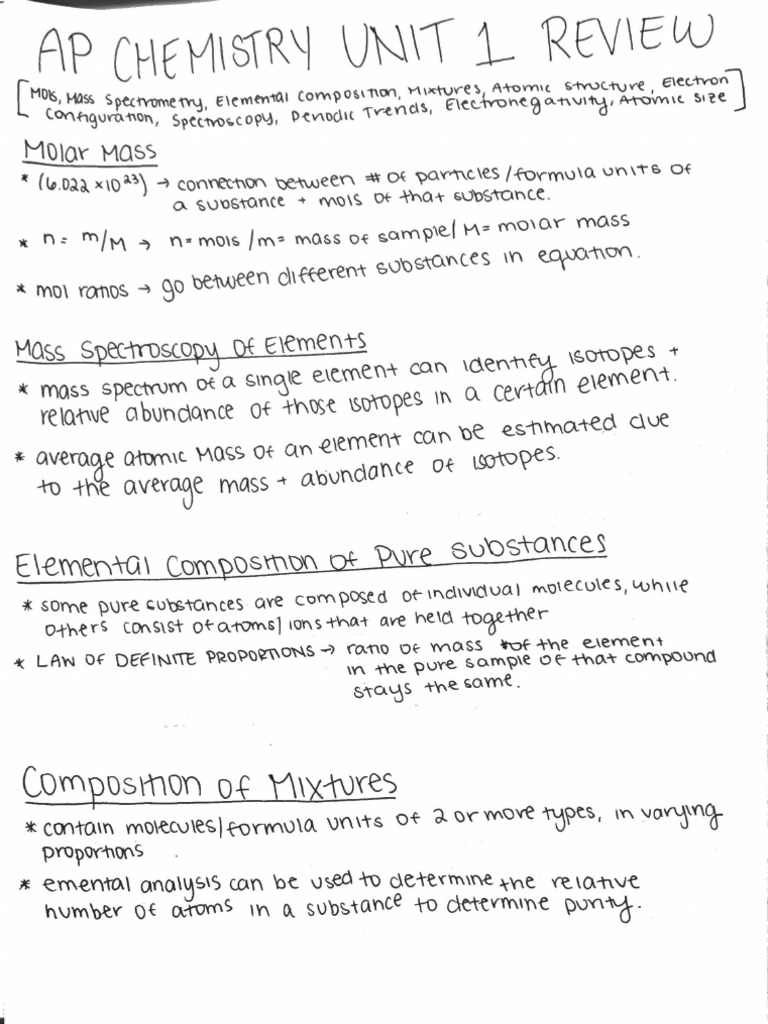 AP CHEMISTRY UNIT 1 REVIEW
[Mols, Mass Spectrometry, Elemental Composition, Mixtures, Atomic structure, Electron
Configuration, Spectroscopy, Periodic Trends, Electronegativity, Atomic Size]
Molar Mass
* (6.022 x10²³) → connection between # of particles/formula units of
a substance + mols of that substance.
* n = m/M → n= mols /m= mass of sample/ M= molar mass
* mol ratios → go between different substances in equation.
Mass Spectroscopy of Elements
* mass spectrum of a single element can identify isotopes +
relative abundance of those isotopes in a certain element.
* average atomic Mass of an element can be estimated clue
to the average mass + abundance of isotopes.
Elemental Composition of Pure Substances
* some pure substances are composed of individual molecules, while
others consist of atoms/ions that are held together
* LAW OF DEFINITE PROPORTIONS → ratio of mass of the element
in the pure sample of that compound
stays the same.
Composition of Mixtures
* contain molecules/formula units of 2 or more types, in varying
proportions.
* emental analysis can be used to determine the relative
number of atoms in a substance to determine purity.